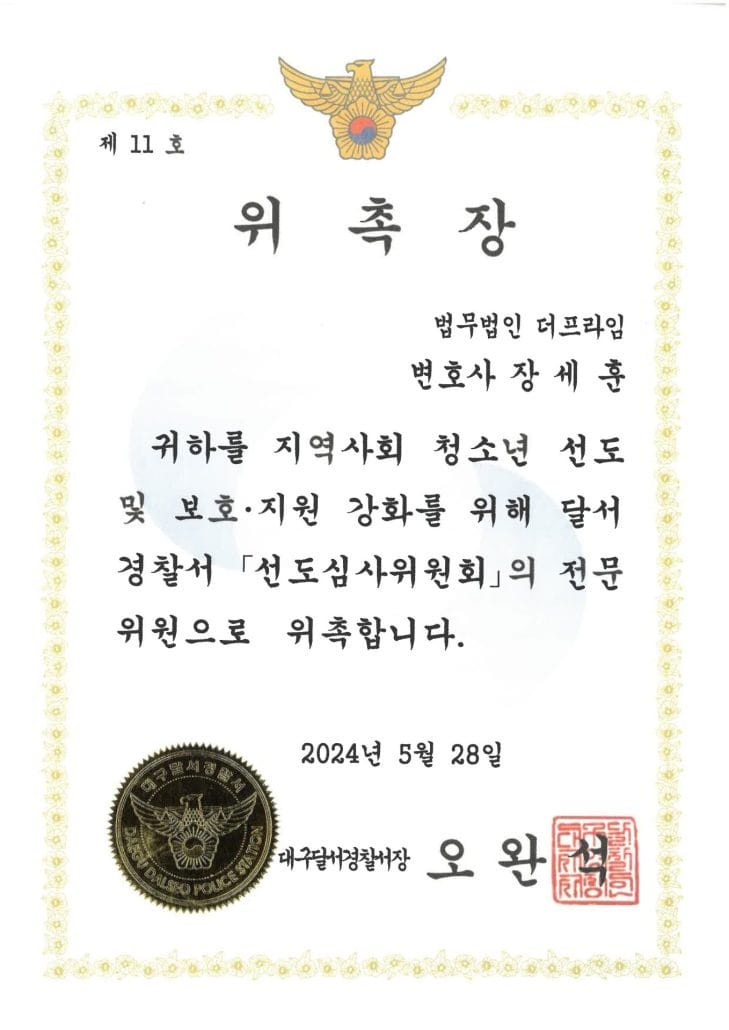 제 11 호
위 촉 장
법무법인 더프라임
변호사 장 세 훈
귀하를 지역사회 청소년 선도
및 보호·지원 강화를 위해 달서
경찰서 「선도심사위원회」의 전문
위원으로 위촉합니다.
2024년 5월 28일
대구달서경찰서
DAEGU DALSEO POLICE STATION
대구달서경찰서장 오 완 석